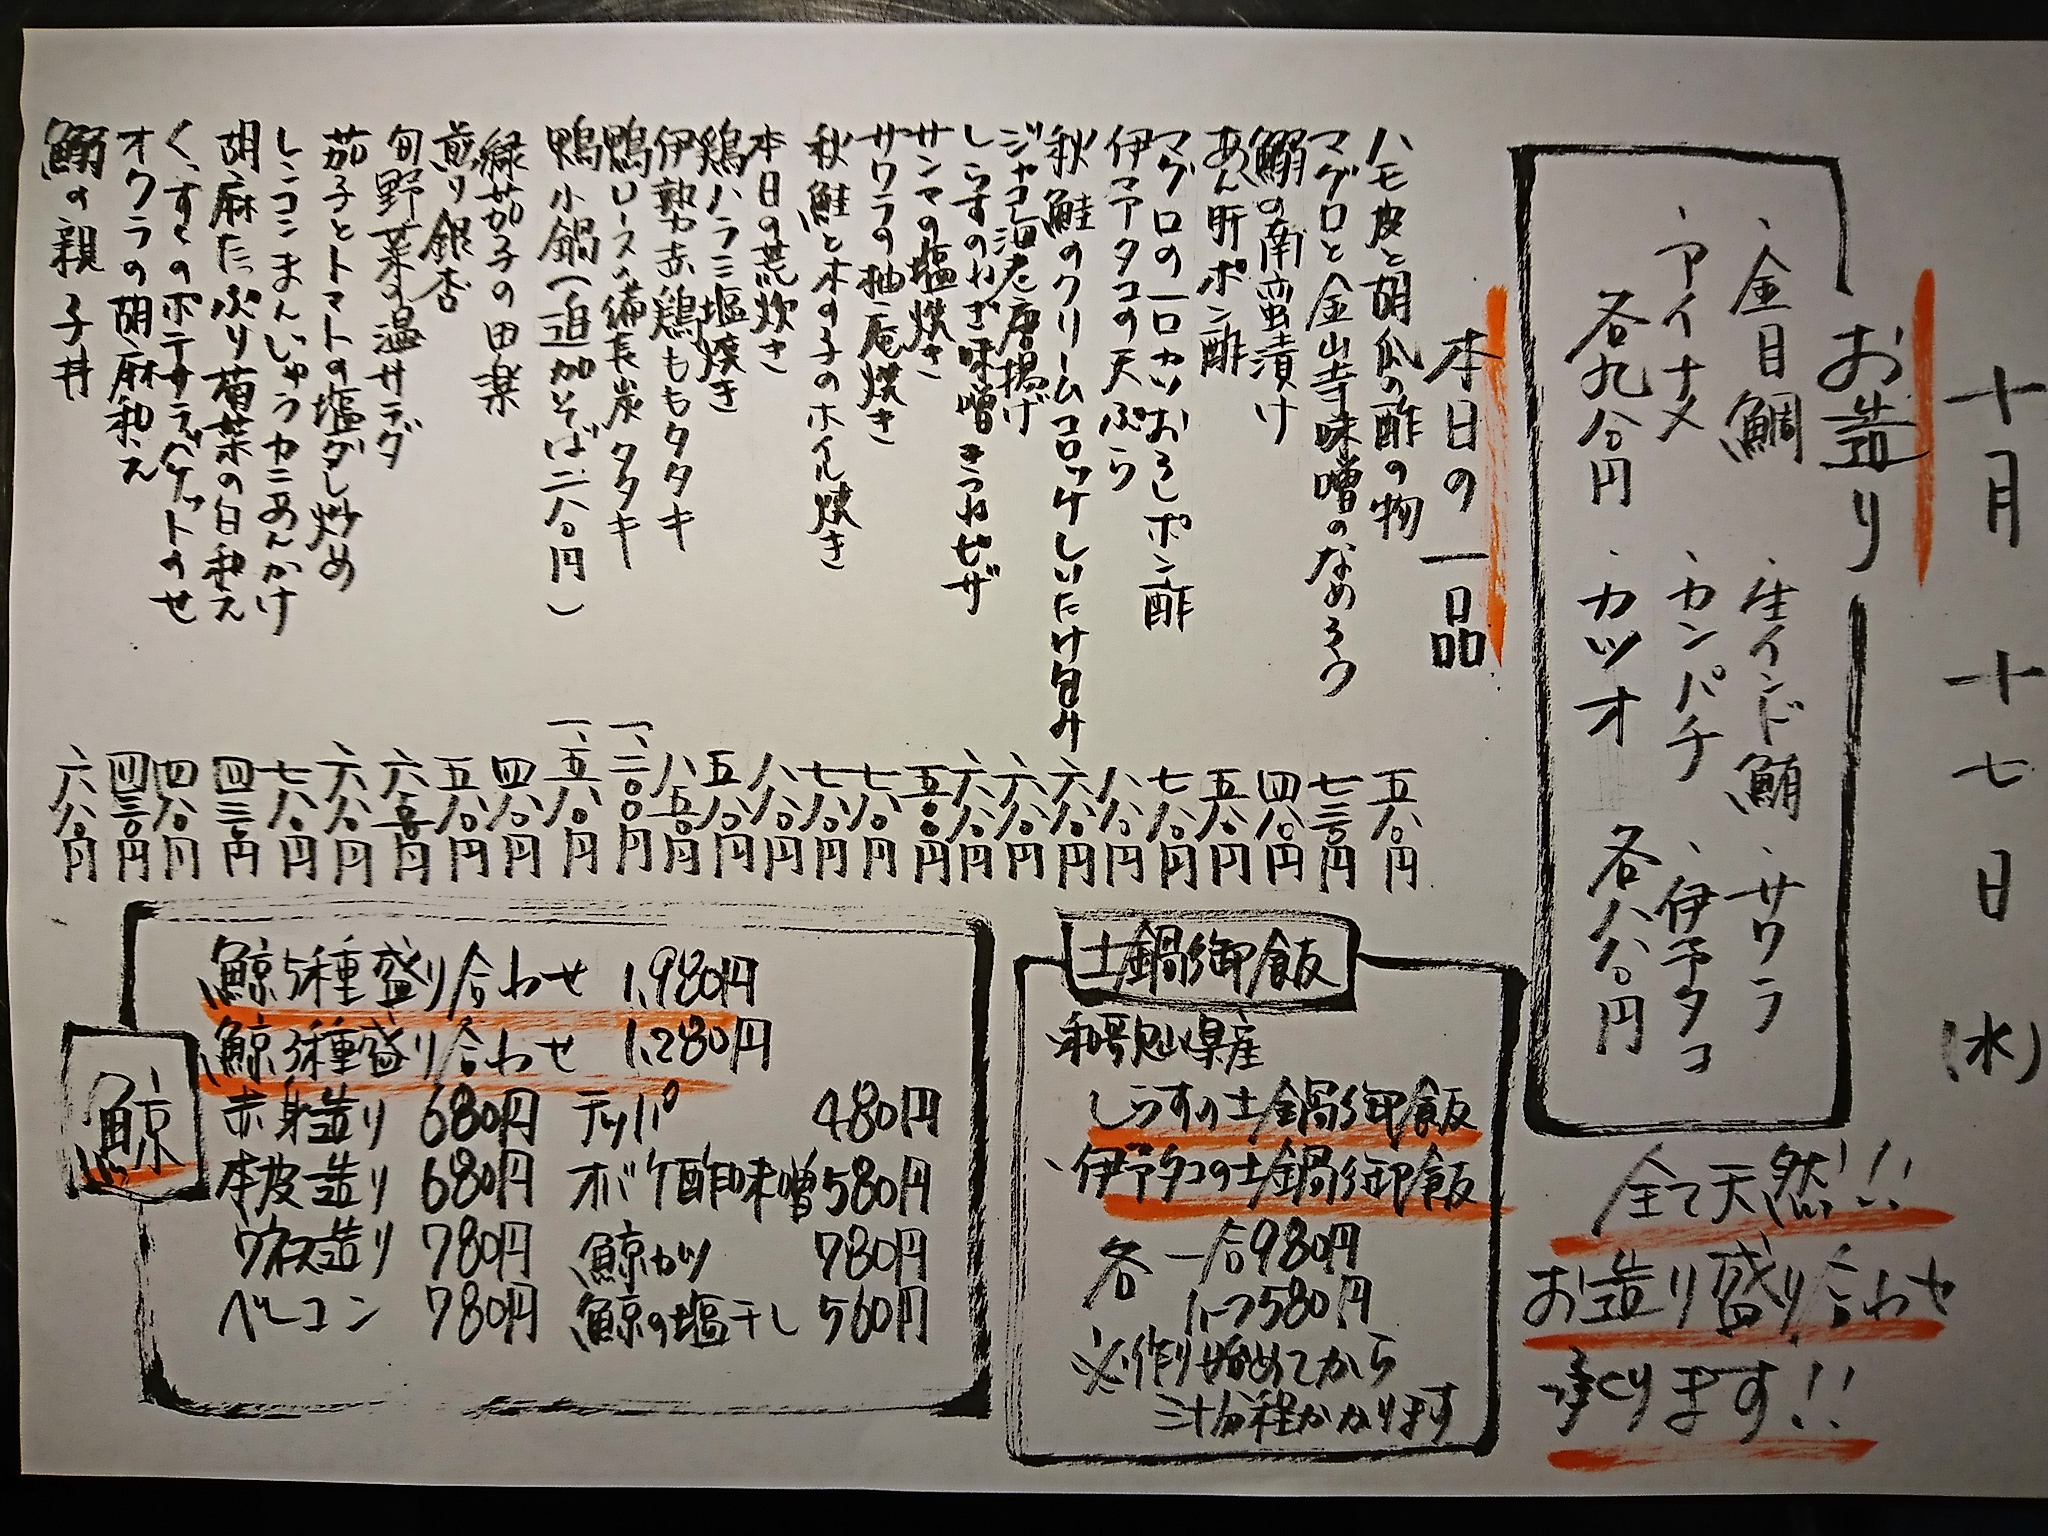 十月十七日(水)
お造り
・金目鯛 ・生インド鮪 ・サワラ
・アイナメ ・カンパチ ・伊予タコ
各九八〇円 ・カツオ 各八八〇円
全て天然!!
お造り盛り合わせ
承ります!!
本日の一品
ハモ皮と胡瓜の酢の物 五八〇円
マグロと金山寺味噌のなめろう 七三〇円
鰯の南蛮漬け 四八〇円
あん肝ポン酢 五八〇円
マグロの一口カツおろしポン酢 七八〇円
伊予タコの天ぷら 八八〇円
秋鮭のクリームコロッケしいたけ包み 六八〇円
ジャコ海老唐揚げ 六八〇円
しらすのねぎ味噌きつねピザ 六八〇円
サンマの塩焼き 五〇〇円
サワラの柚庵焼き 七八〇円
秋鮭と木の子のホイル焼き 七八〇円
本日の荒炊き 八八〇円
鶏ハラミ塩焼き 五八〇円
伊勢赤鶏ももタタキ 八五〇円
鴨ロース備長炭タタキ 一、二〇〇円
鴨小鍋(追加そば二八〇円) 一、五八〇円
緑茄子の田楽 四八〇円
煎り銀杏 五八〇円
旬野菜の温サラダ 六五〇円
茄子とトマトの塩ダレ炒め 六八〇円
レンコンまんじゅうカニあんかけ 七八〇円
胡麻たっぷり菊菜の白和え 四三〇円
くんすくのポテサラバケットのせ 四八〇円
オクラの胡麻和え 四三〇円
鰯の親子丼 六八〇円
土鍋御飯
・和歌山県産
しらすの土鍋御飯
・伊予タコの土鍋御飯
各 一合980円
1つ580円
※作り始めてから
三十分程かかります
鯨
鯨5種盛り合わせ 1,980円
鯨3種盛り合わせ 1,280円
赤身造り 680円 テッパ 480円
本皮造り 680円 オバケ酢味噌 580円
ウネス造り 780円 鯨カツ 780円
ベーコン 780円 鯨の塩干し 560円